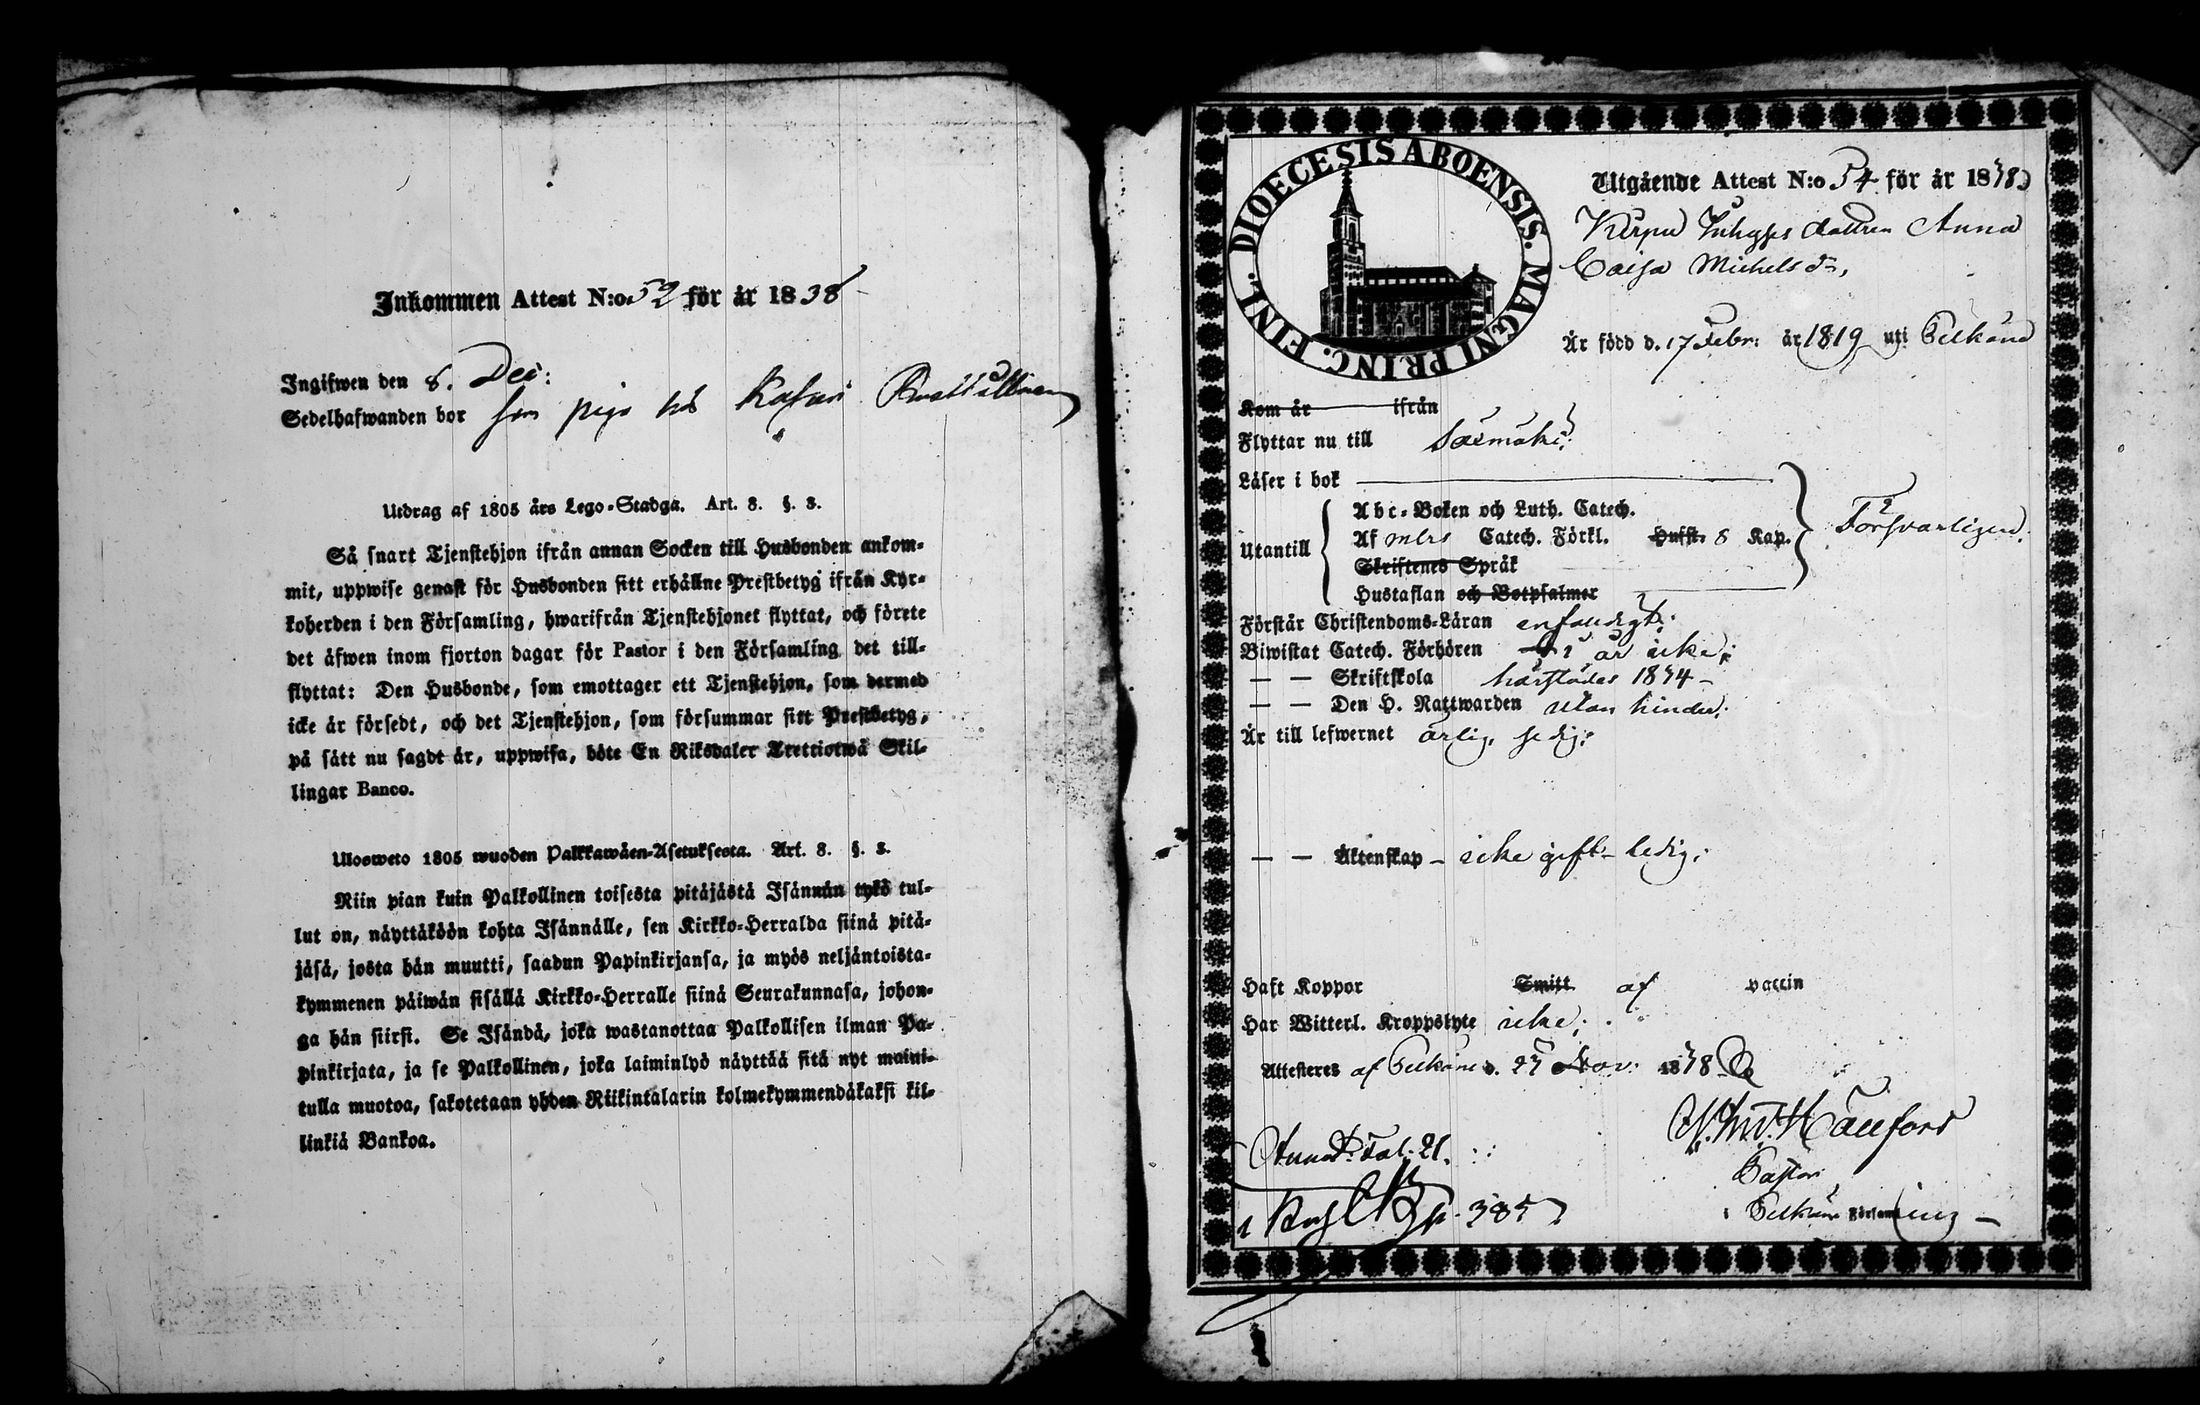 Inkommen Attest N:o 52 för år 1838
Ingifwen den 8. Dec:
Sedelhafwanden bor som piga hos
Utdrag af 1805 års Lego-Stadga. Art. 8. §. 3.
Så snart Tjenstehjon ifrån annan Socken till Husbonden ankom-
mit, uppwise genast för Husbonden sitt erhållne Prestbetyg ifrån Kyr-
koherden i den Församling, hwarifrån Tjenstehjonet flyttat, och förete
det äfwen inom fjorton dagar för Pastor i den Församling det till-
flyttat: Den Husbonde, som emottager ett Tjenstehjon, som dermed
icke är försedt, och det Tjenstehjon, som försummar sitt Prestbetyg,
på sätt nu sagdt är, uppwisa, böte En Riksdaler Trettiotwå Skil-
lingar Banco.
Ulosweto 1805 wuoden Palkkawäen-Asetuksesta. Art. 8. §. 3.
Niin pian kuin Palkollinen toisesta pitäjästä Isännän tykö tul-
lut on, näyttäköön kohta Isännälle, sen Kirkko-Herralda siinä pitä-
jäsä, josta hän muutti, saadun Papinkirjansa, ja myös neljäntoista-
kymmenen päiwän sisällä Kirkko-Herralle siinä Seurakunnasa, johon-
ga hän siirsi. Se Isändä, joka wastanottaa Palkollisen ilman Pa-
pinkirjata, ja se Palkollinen, joka laiminlyö näyttää sitä nyt maini-
tulla muotoa, sakotetaan yhden Riikintalarin kolmekymmendäkaksi kil-
linkiä Bankoa.
DIOECESIS ABOENSIS. MAGNI PRINC. FINL.
Utgående Attest N:o 54 för år 1838
dottren Anna
Caisa Michelsdr,
Är född d. 17 Febr: år 1819 uti Pelkäne
Kom år ifrån
Flyttar nu till Sääxmäki:
Läser i bok
Abc-Boken och Luth. Catech.
Utantill Af mlrs Catech. Förkl. Hufst. 8 Kap. Försvarligen.
Skriftenes Språk
Hustaflan och Botpsalmer
Förstår Christendoms-Läran enfaldigt:
Biwistat Catech. Förhören i år icke:
— — Skriftskola härstädes 1834 –
— — Den H. Nattwarden utan hinder:
Är till lefwernet ärlig, sedig:
— — Äktenskap – icke gift – ledig:
Haft Koppor Smitt af vaccin
Har Witterl. Kroppslyte icke:
Attesteres af Pelkäne d. 27 Nov: 1838
Hällfors
Pastor
i Pelkäne Församling —